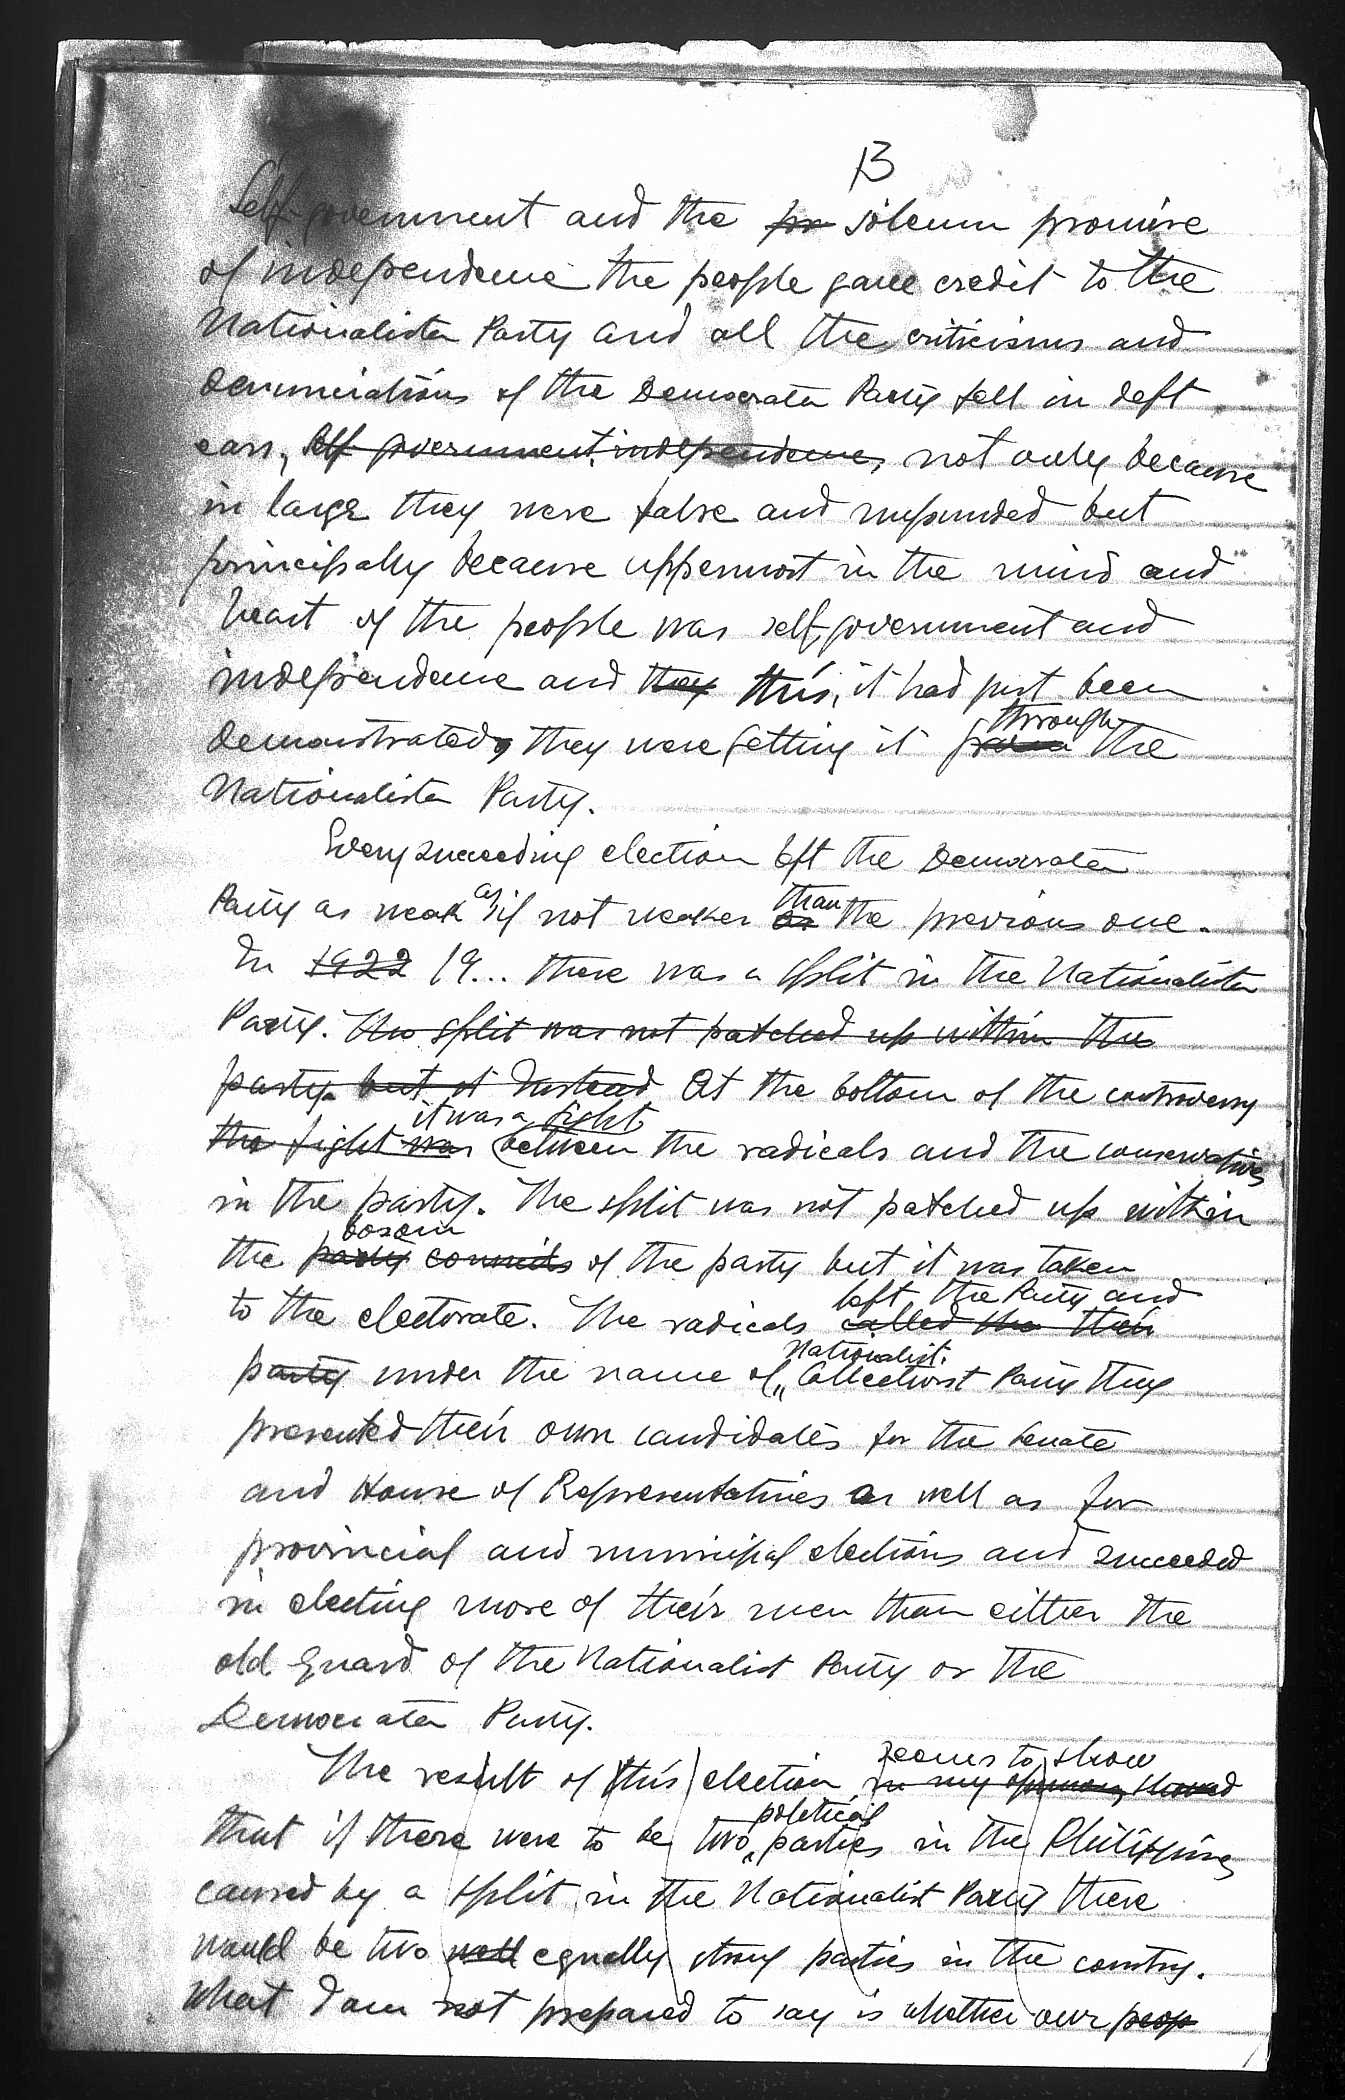 13
Self-government and the pr solemn promise
of independence the people gave credit to the
Nationalista Party and all the criticisms and
denunciations of the Democrata Party fell in deft
ears, self government, independence, not only because
in large they were false and unfounded but
principally because uppermost in the mind and
heart of the people was self-government and
independence and they this, it had just been
through
demonstrated, they were getting it from the
Nationalista Party.
Every succeeding election left the Democrata
as than
Party as weak if not weaker as the previous one.
In 1922 19... there was a split in the Nationalista
Party. The split was not patched up within the
party. but it Instead At the bottom of the controversy
it was a fight
the fight was between the radicals and the conservatives
in the party. The split was not patched up within
bosom
the party councils of the party but it was taken
left the Party and
to the electorate. The radicals called the their
Nationalist.
party under the name of "Collectivist Party they
presented their own candidates for the Senate
and House of Representatives as well as for
provincial and municipal elections and succeeded
in electing more of their men than either the
old guard of the Nationalist Party or the
Democrata Party.
seems to show
The result of this election in my opinion, showed
political
that if there were to be two parties in the Philippines
caused by a split in the Nationalist Party there
would be two well equally strong parties in the country.
What I am not prepared to say is whether our peop